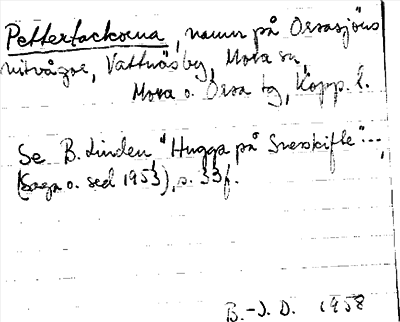 Pettertackorna, namn på Orsasjöns
vitvågor, Vattnäs by, Mora sn,
Mora o. Orsa tg, Kopp. l.
Se B. Linden, "Hugga på Sneskifte"...,
(Saga o. sed 1953), s. 33f.
B.-J. D. 1958